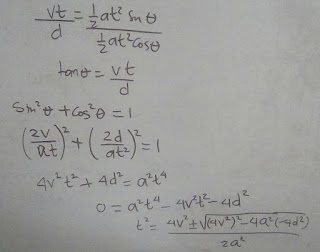 vt/d = ½at² sinθ / ½at² cosθ
tanθ = vt/d
sin²θ + cos²θ = 1
(2v/at)² + (2d/at²)² = 1
4v²t² + 4d² = a²t⁴
0 = a²t⁴ - 4v²t² - 4d²
t² = 4v² ± √((4v²)² - 4a²(-4d²)) / 2a²